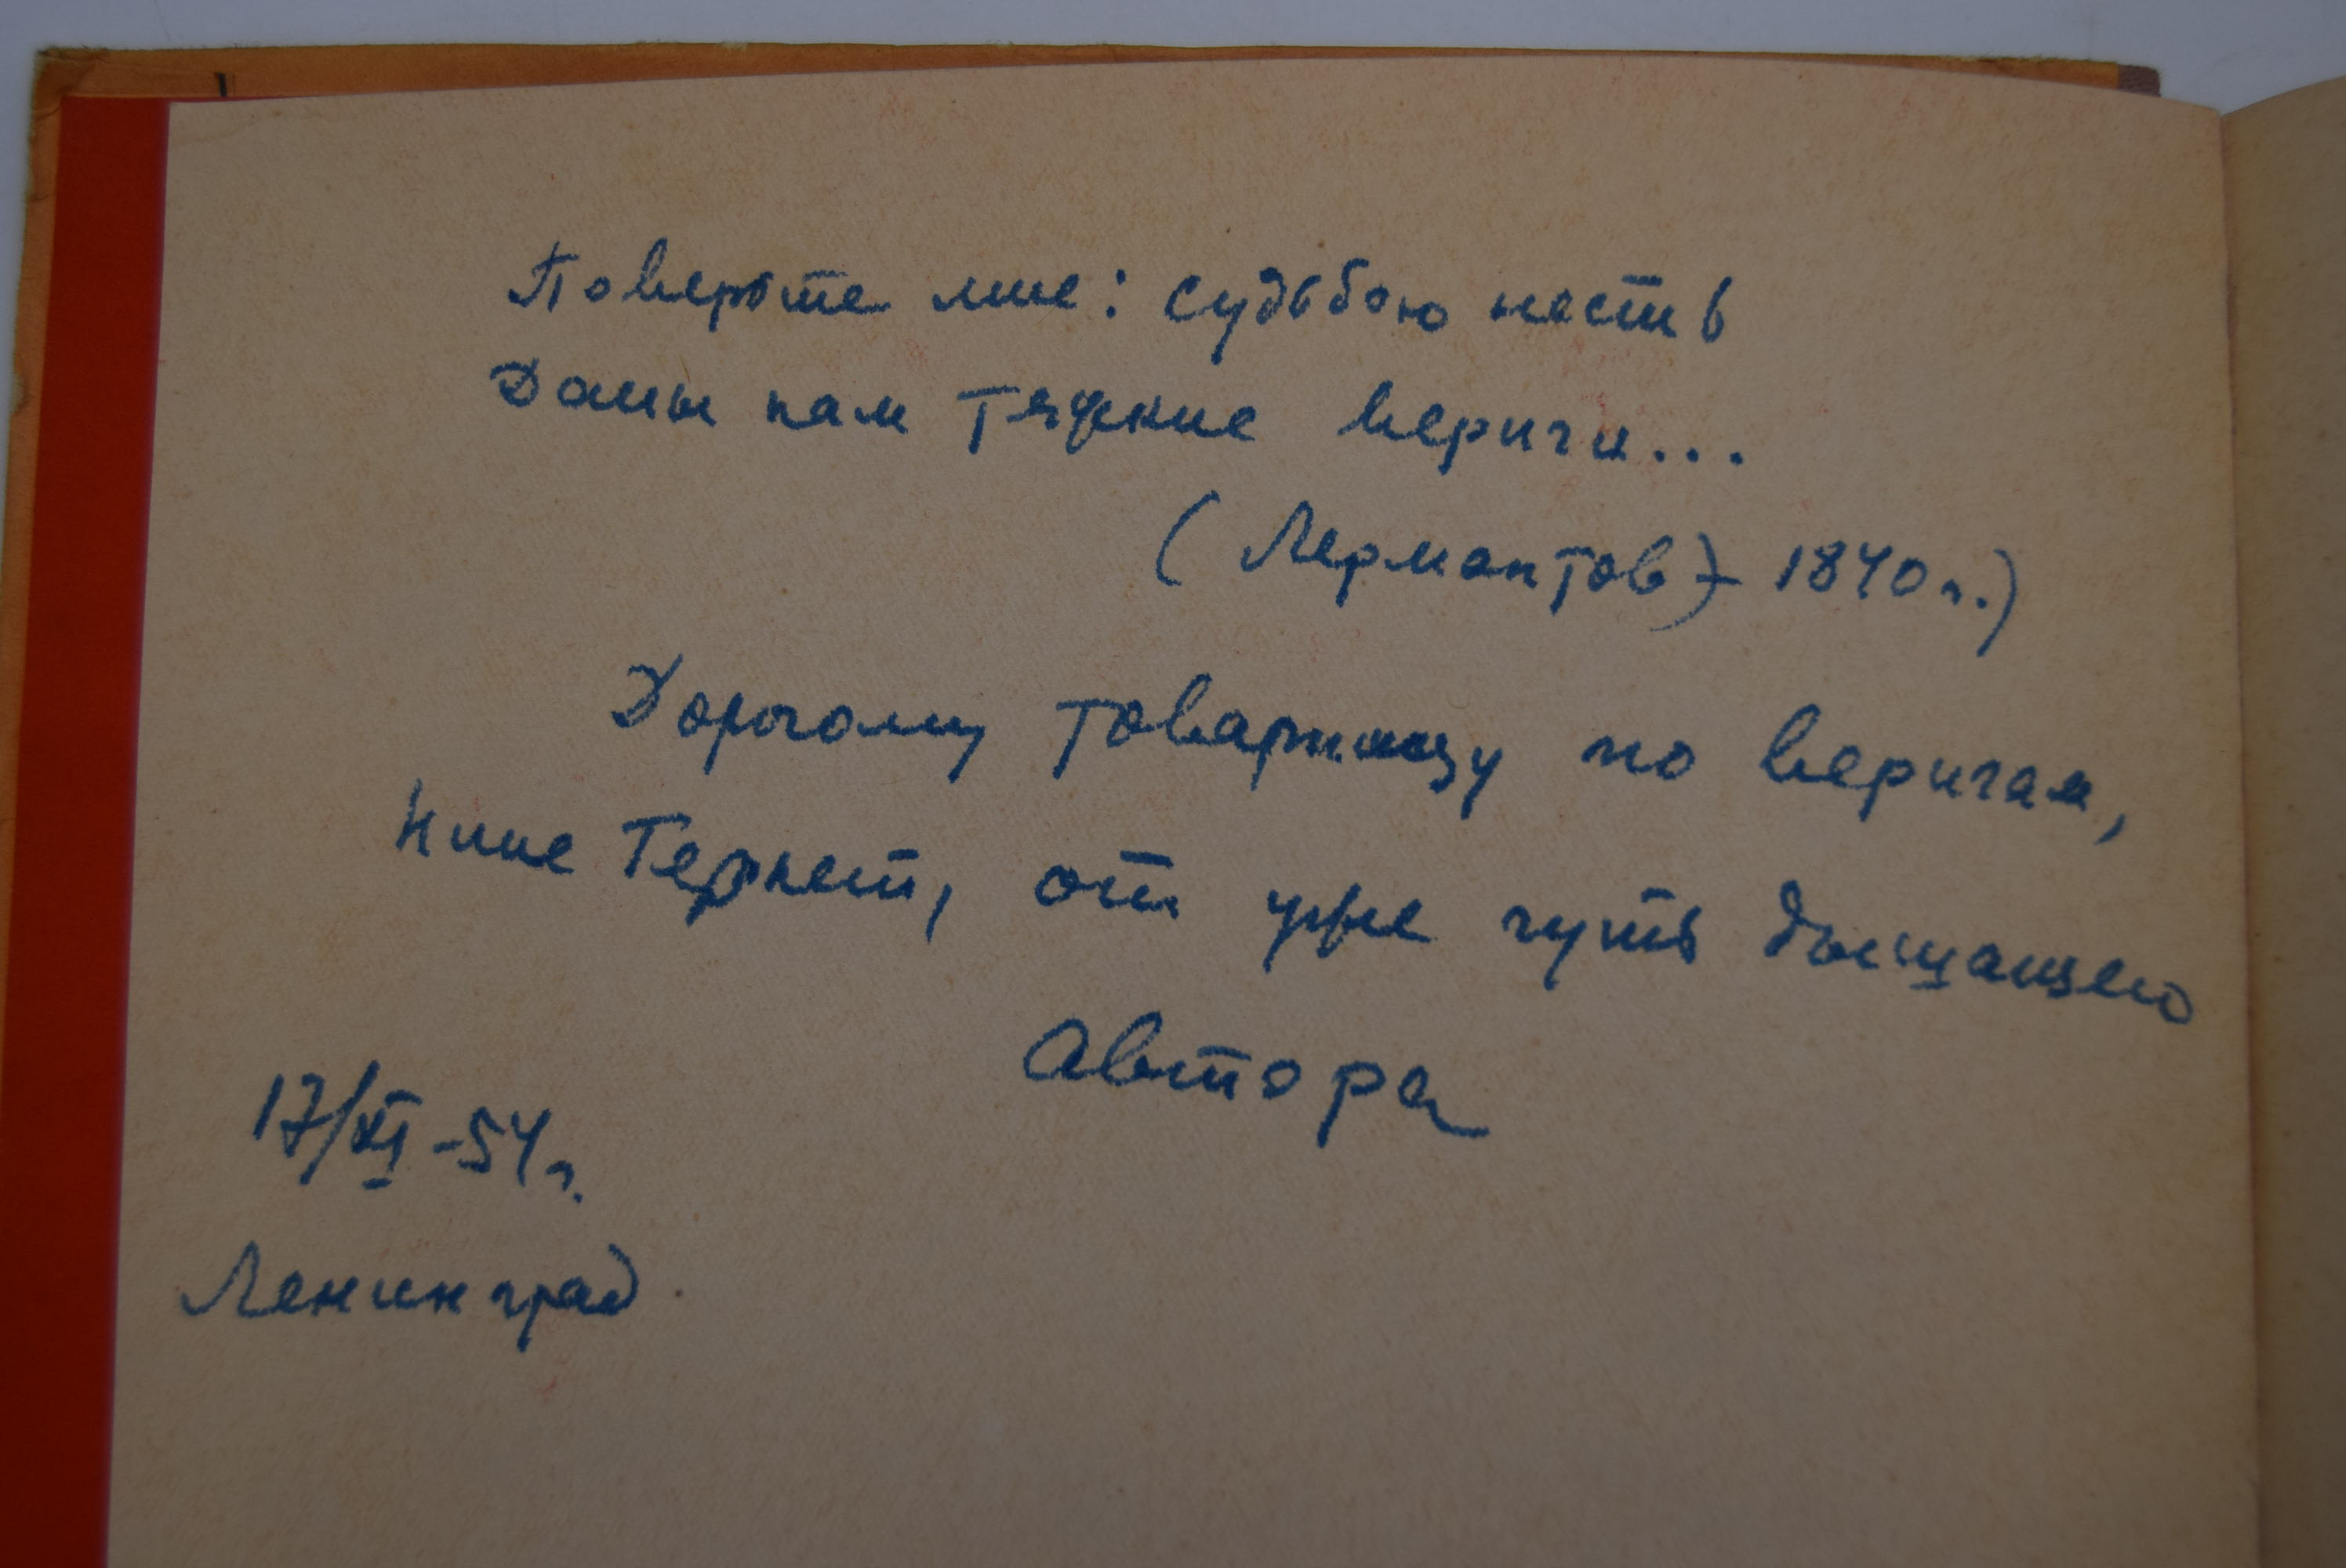 Поверьте мне: судьбою несть
Даны нам тяжкие вериги...
(Лермонтов) - 1840 г.)
Дорогому товарищу по веригам,
Нине Тернет, от уже чуть дышащего
автора
17/XI-54 г.
Ленинград.